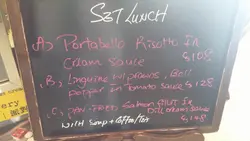 SET LUNCH
A) Portabello Risotto In
Cream sauce $108
B) Linguine w/prawns, Bell
pepper in Tomato sauce $128
C) PAN-FRIED Salmon fillet IN
Dill cream sauce
$148
with Soup + Coffee/Tea